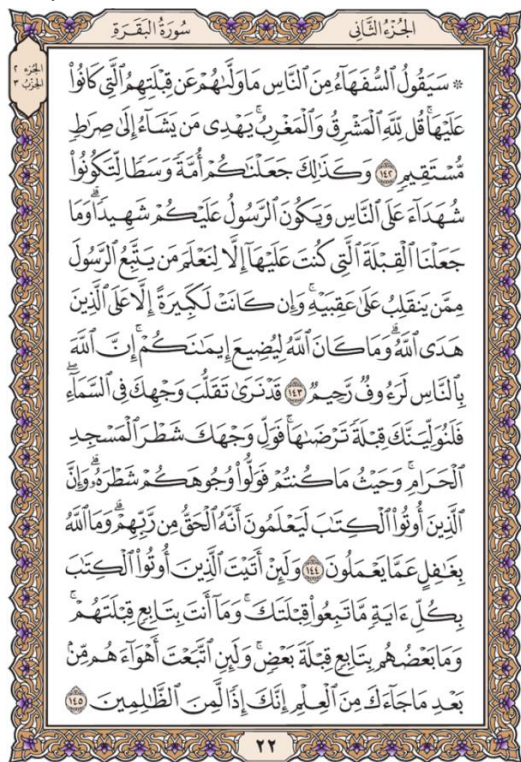 الجُزْءُ الثَّانِي
سُورَةُ البَقَرَةِ
الجزء ٢
الحزب ٣
۞ سَيَقُولُ ٱلسُّفَهَآءُ مِنَ ٱلنَّاسِ مَا وَلَّىٰهُمْ عَن قِبْلَتِهِمُ ٱلَّتِى كَانُوا۟
عَلَيْهَا ۚ قُل لِّلَّهِ ٱلْمَشْرِقُ وَٱلْمَغْرِبُ ۚ يَهْدِى مَن يَشَآءُ إِلَىٰ صِرَٰطٍ
مُّسْتَقِيمٍ ١٤٢ وَكَذَٰلِكَ جَعَلْنَٰكُمْ أُمَّةً وَسَطًا لِّتَكُونُوا۟
شُهَدَآءَ عَلَى ٱلنَّاسِ وَيَكُونَ ٱلرَّسُولُ عَلَيْكُمْ شَهِيدًا ۗ وَمَا
جَعَلْنَا ٱلْقِبْلَةَ ٱلَّتِى كُنتَ عَلَيْهَآ إِلَّا لِنَعْلَمَ مَن يَتَّبِعُ ٱلرَّسُولَ
مِمَّن يَنقَلِبُ عَلَىٰ عَقِبَيْهِ ۚ وَإِن كَانَتْ لَكَبِيرَةً إِلَّا عَلَى ٱلَّذِينَ
هَدَى ٱللَّهُ ۗ وَمَا كَانَ ٱللَّهُ لِيُضِيعَ إِيمَٰنَكُمْ ۚ إِنَّ ٱللَّهَ
بِٱلنَّاسِ لَرَءُوفٌ رَّحِيمٌ ١٤٣ قَدْ نَرَىٰ تَقَلُّبَ وَجْهِكَ فِى ٱلسَّمَآءِ ۖ
فَلَنُوَلِّيَنَّكَ قِبْلَةً تَرْضَىٰهَا ۚ فَوَلِّ وَجْهَكَ شَطْرَ ٱلْمَسْجِدِ
ٱلْحَرَامِ ۚ وَحَيْثُ مَا كُنتُمْ فَوَلُّوا۟ وُجُوهَكُمْ شَطْرَهُۥ ۗ وَإِنَّ
ٱلَّذِينَ أُوتُوا۟ ٱلْكِتَٰبَ لَيَعْلَمُونَ أَنَّهُ ٱلْحَقُّ مِن رَّبِّهِمْ ۗ وَمَا ٱللَّهُ
بِغَٰفِلٍ عَمَّا يَعْمَلُونَ ١٤٤ وَلَئِنْ أَتَيْتَ ٱلَّذِينَ أُوتُوا۟ ٱلْكِتَٰبَ
بِكُلِّ ءَايَةٍ مَّا تَبِعُوا۟ قِبْلَتَكَ ۚ وَمَآ أَنتَ بِتَابِعٍ قِبْلَتَهُمْ ۚ
وَمَا بَعْضُهُم بِتَابِعٍ قِبْلَةَ بَعْضٍ ۚ وَلَئِنِ ٱتَّبَعْتَ أَهْوَآءَهُم مِّنۢ
بَعْدِ مَا جَآءَكَ مِنَ ٱلْعِلْمِ إِنَّكَ إِذًا لَّمِنَ ٱلظَّٰلِمِينَ ١٤٥
٢٢